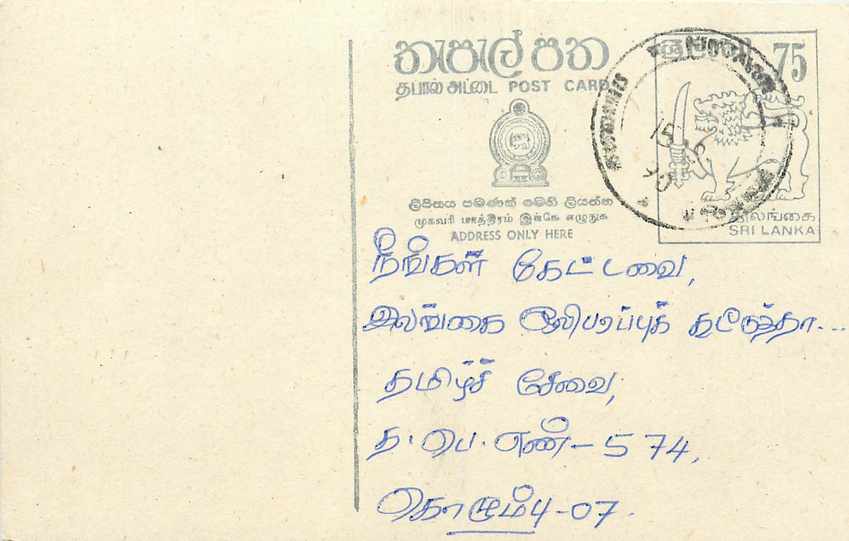 තැපැල් පත
தபால் அட்டை POST CARD
75
15 6
90
ලිපිනය පමණක් මෙහි ලියන්න
முகவரி மாத்திரம் இங்கே எழுதுக
ADDRESS ONLY HERE
இலங்கை
SRI LANKA
நீங்கள் கேட்டவை,
இலங்கை ஒலிபரப்புக் கூட்டுத்தா...
தமிழ்ச் சேவை,
த. பெ. எண் - 574,
கொழும்பு - 07.